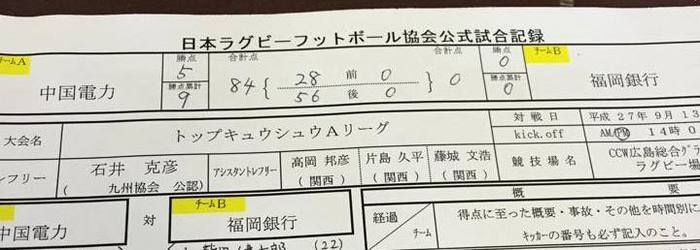 日本ラグビーフットボール協会公式試合記録
チームA 勝点 合計点 合計点 勝点 チームB
中国電力 5 84 { 28 前 0 } 0 0 福岡銀行
勝点累計 9 56 後 0 勝点累計 0
大会名 トップキュウシュウAリーグ 対戦日 平成 27年 9月 13
kick.off AM PM 14時0
レフリー 石井 克彦 アシスタントレフリー 高岡 邦彦 片島 久平 藤城 文浩 競技場名 CCW広島総合グラ
( 九州協会 公認) (関西) (関西) (関西) ラグビー場
概 要
中国電力 対 チームB 福岡銀行 経過 得点に至った概要・事故・その他を時間別に
チーム キッカーの番号も必ず記入のこと。
(22)